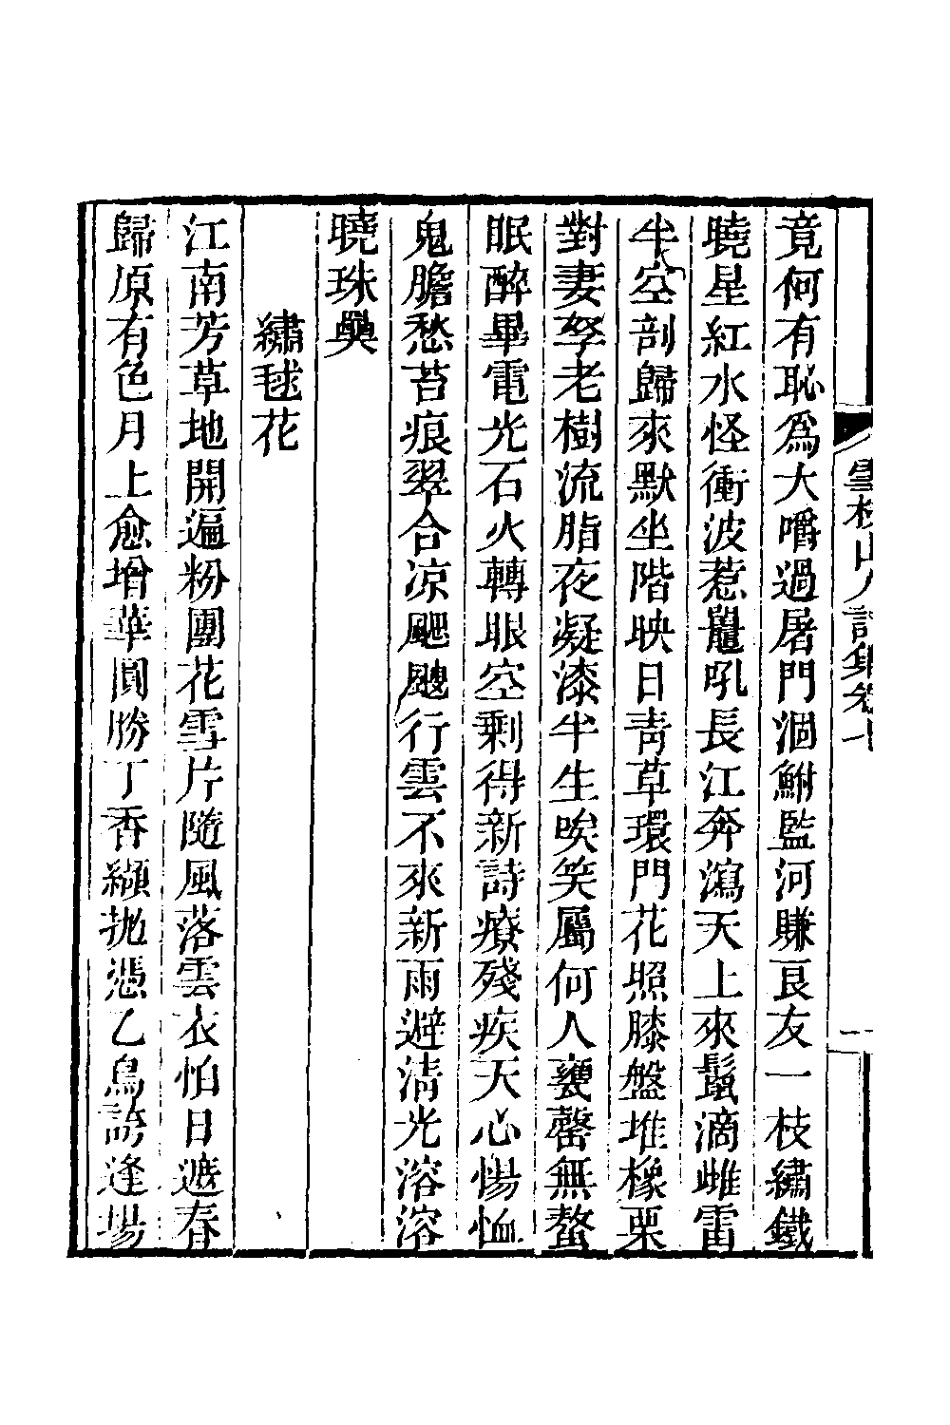 竟何有恥爲大嚼過屠門涸鮒監河賺良友一枝繡鐵
曉星紅水怪衝波惹鼉吼長江奔瀉天上來鬚滴雌雷
半空剖歸來默坐階映日靑草環門花照膝盤堆橡栗
對妻孥老樹流脂夜凝漆半生唉笑屬何人甕罄無螯
眠醉畢電光石火轉眼空剩得新詩療殘疾天心惕恤
鬼膽愁苔痕翠合凉颸颼行雲不來新雨避淸光溶溶
曉珠奥
繡毬花
江南芳草地開遍粉團花雪片隨風落雲衣怕日遮春
歸原有色月上愈增華圓勝丁香纈拋憑乙鳥誇逢場
山人詩集卷
一